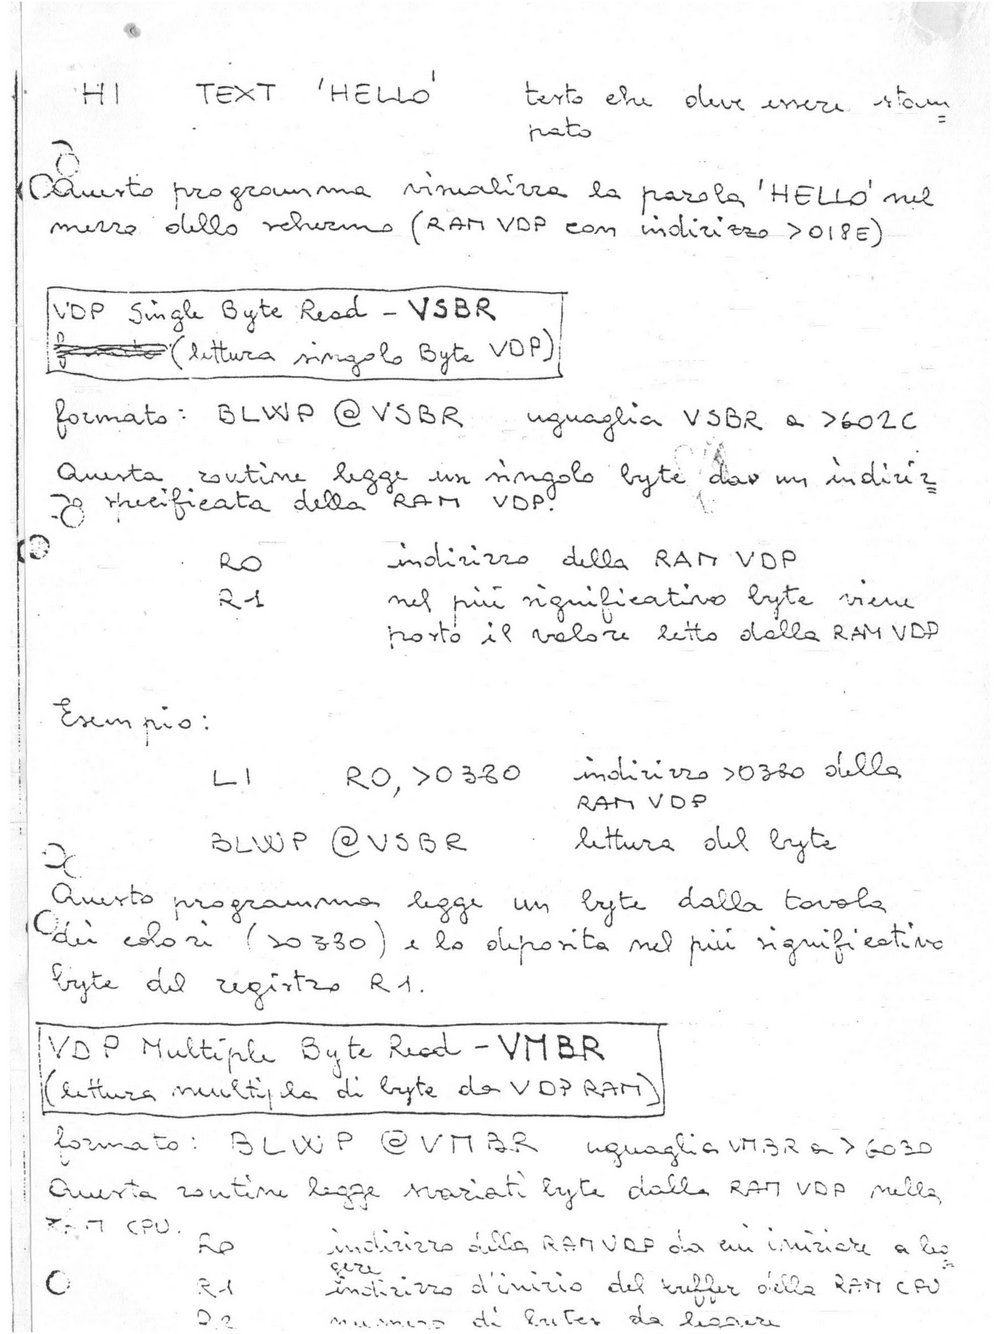 H1 TEXT 'HELLO' testo che deve essere stam=
pato
Questo programma visualizza la parola 'HELLO' nel
mezzo dello schermo (RAM VDP con indirizzo >018E)
VDP Single Byte Read - VSBR
(lettura singolo Byte VDP)
formato: BLWP @VSBR uguaglia VSBR a >602C
Questa routine legge un singolo byte da un indiriz=
zo specificata della RAM VDP.
R0 indirizzo della RAM VDP
R1 nel più significativo byte viene
posto il valore letto dalla RAM VDP
Esempio:
LI R0, >0380 indirizzo >0380 della
RAM VDP
BLWP @VSBR lettura del byte
Questo programma legge un byte dalla tavola
dei colori (>0380) e lo deposita nel più significativo
byte del registro R1.
VDP Multiple Byte Read - VMBR
(lettura multipla di byte da VDP RAM)
formato: BLWP @VMBR uguaglia VMBR a >6030
Questa routine legge svariati byte dalla RAM VDP nella
RAM CPU.
R0 indirizzo della RAM VDP da cui iniziare a leg=
gere
R1 indirizzo d'inizio del buffer della RAM CPU
R2 numero di bytes da leggere